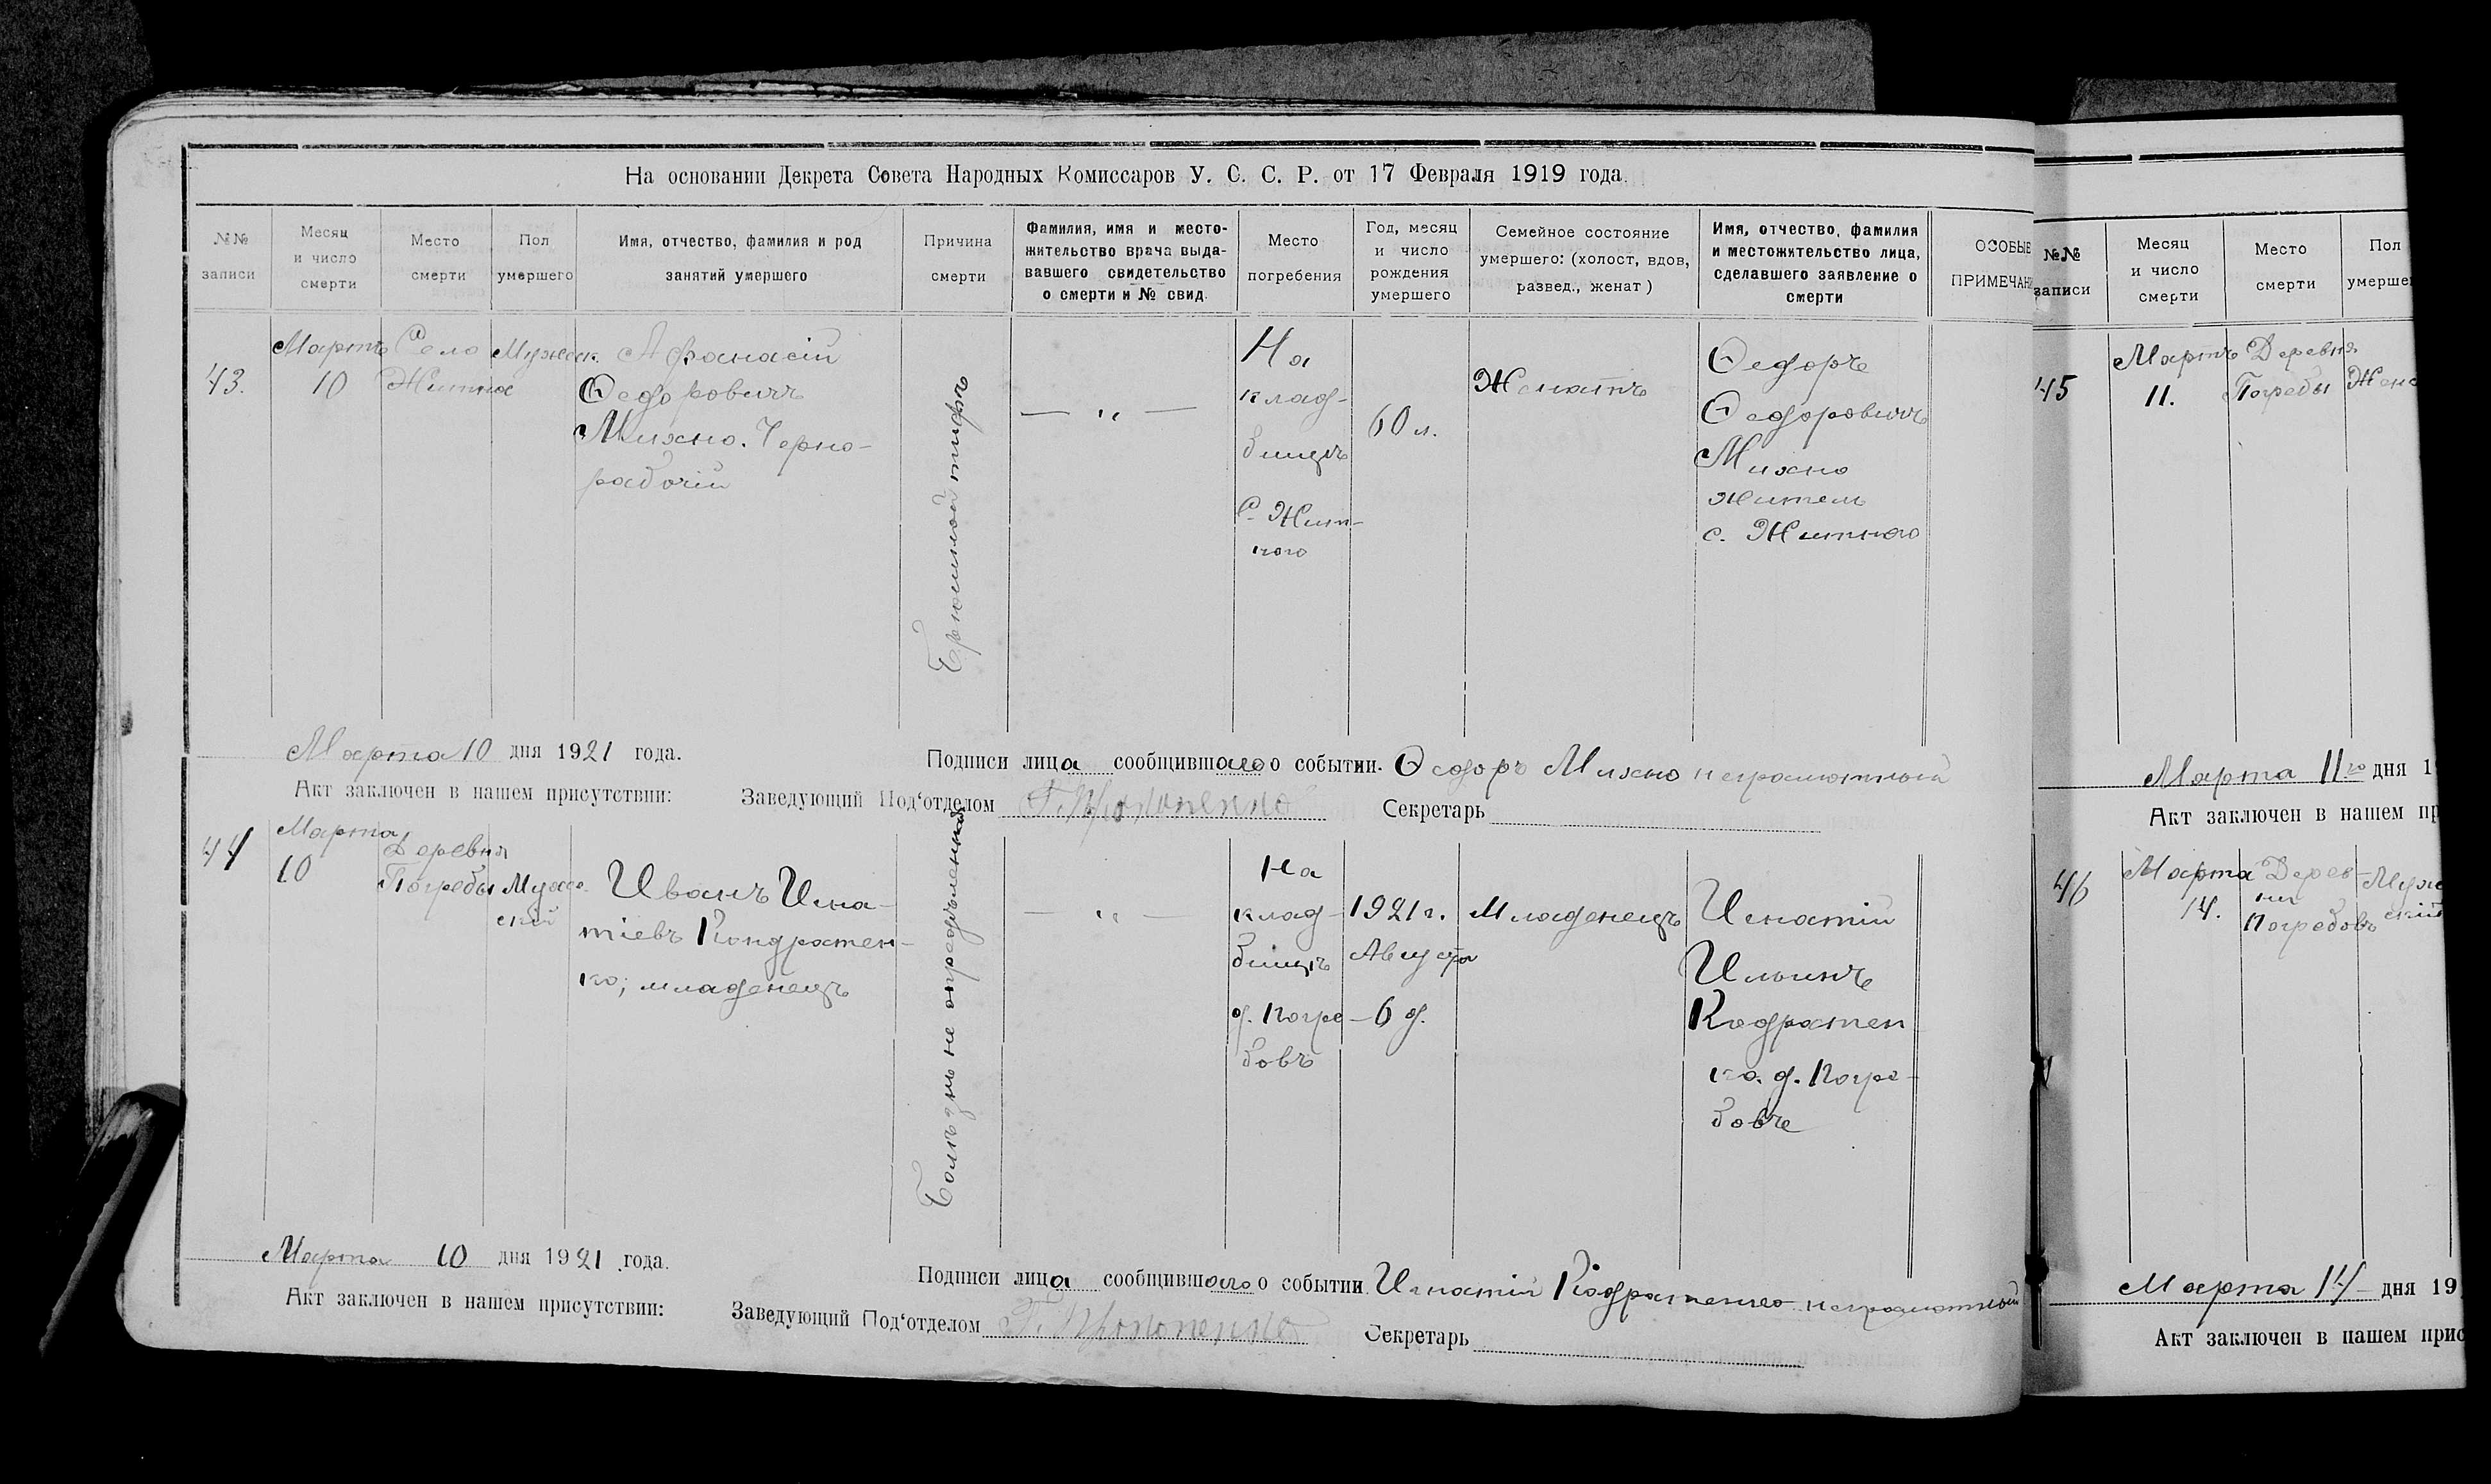 На основании Декрета Совета Народных Комиссаров У. С. С. Р. от 17 Февраля 1919 года.
№№ записи
Месяц и число смерти
Место смерти
Пол умершего
Имя, отчество, фамилия и род занятий умершего
Причина смерти
Фамилия, имя и место-
жительство врача выда-
вавшего свидетельство
о смерти и № свид.
Место погребения
Год, месяц и число рождения умершего
Семейное состояние
умершего: (холост, вдов,
развед., женат)
Имя, отчество, фамилия
и местожительство лица,
сделавшего заявление о
смерти
ОСОБЫЕ
ПРИМЕЧАНИ
43.
Мартъ
10
Село
Житна
Мужеск.
Афанасій
Ѳедоровичъ
Михно. Черно-
рабочій
Брюшной тифъ
— " —
На
клад-
бищѣ
С. Жит-
ного
60 л.
Женатъ
Ѳедоръ
Ѳедоровичъ
Михно
житель
с. Житного
Марта 10 дня 1921 года.
Подписи лица сообщившаго о событии. Ѳедоръ Михно неграмотный
Акт заключен в нашем присутствии: Заведующий Под‘отделом Секретарь
44
Марта
10
Деревня
Погребы
Мужс-
скій
Иванъ Игна-
тіевъ Кондратен-
ко; младенецъ
Болѣзнь не опредѣленная
— " —
На
клад-
бищѣ
д. Погре-
бовъ
1921 г.
Августа
6 д.
Младенецъ
Игнатій
Ильинъ
Кодратен
ко. д. Погре-
бовъ
Марта 10 дня 1921 года.
Подписи лица сообщившаго о событии. Игнатій Кодратенко неграмотный
Акт заключен в нашем присутствии: Заведующий Под‘отделом Секретарь
№№ записи
Месяц и число смерти
Место смерти
Пол
умерше
45
Мартъ
11.
Деревня
Погребы
Женс
Марта 11го дня 1
Акт заключен в нашем пр
46
Марта
14.
Дерев-
ни
Погребовъ
Муже
скій
Марта 14 дня 19
Акт заключен в нашем прис